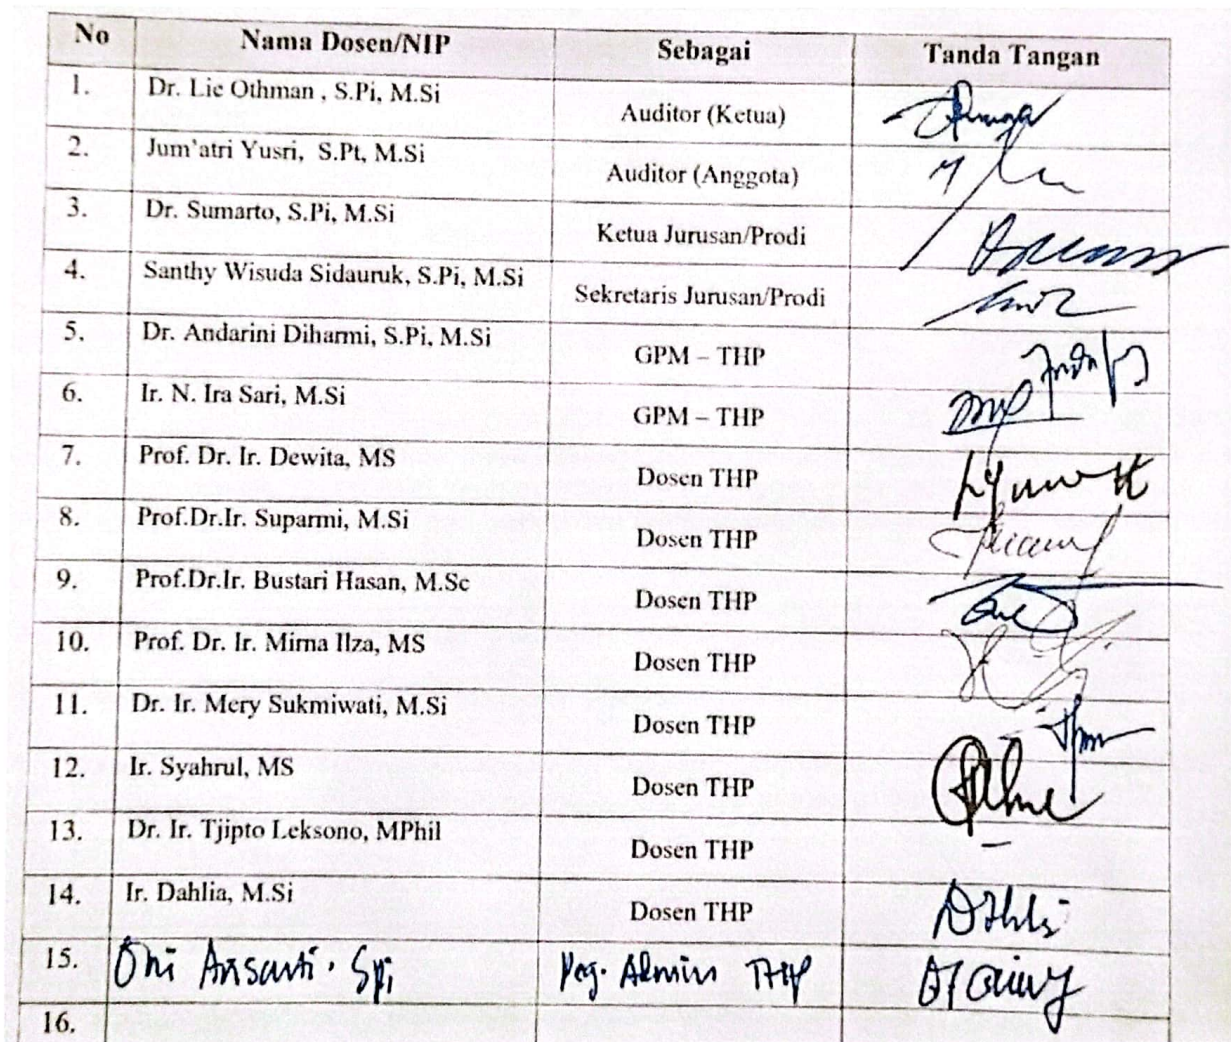 No Nama Dosen/NIP Sebagai Tanda Tangan
1. Dr. Lie Othman , S.Pi, M.Si Auditor (Ketua)
2. Jum'atri Yusri, S.Pt, M.Si Auditor (Anggota)
3. Dr. Sumarto, S.Pi, M.Si Ketua Jurusan/Prodi
4. Santhy Wisuda Sidauruk, S.Pi, M.Si Sekretaris Jurusan/Prodi
5. Dr. Andarini Diharmi, S.Pi, M.Si GPM – THP
6. Ir. N. Ira Sari, M.Si GPM – THP
7. Prof. Dr. Ir. Dewita, MS Dosen THP
8. Prof.Dr.Ir. Suparmi, M.Si Dosen THP
9. Prof.Dr.Ir. Bustari Hasan, M.Sc Dosen THP
10. Prof. Dr. Ir. Mirna Ilza, MS Dosen THP
11. Dr. Ir. Mery Sukmiwati, M.Si Dosen THP
12. Ir. Syahrul, MS Dosen THP
13. Dr. Ir. Tjipto Leksono, MPhil Dosen THP –
14. Ir. Dahlia, M.Si Dosen THP
15. Spi Admin THP
16.